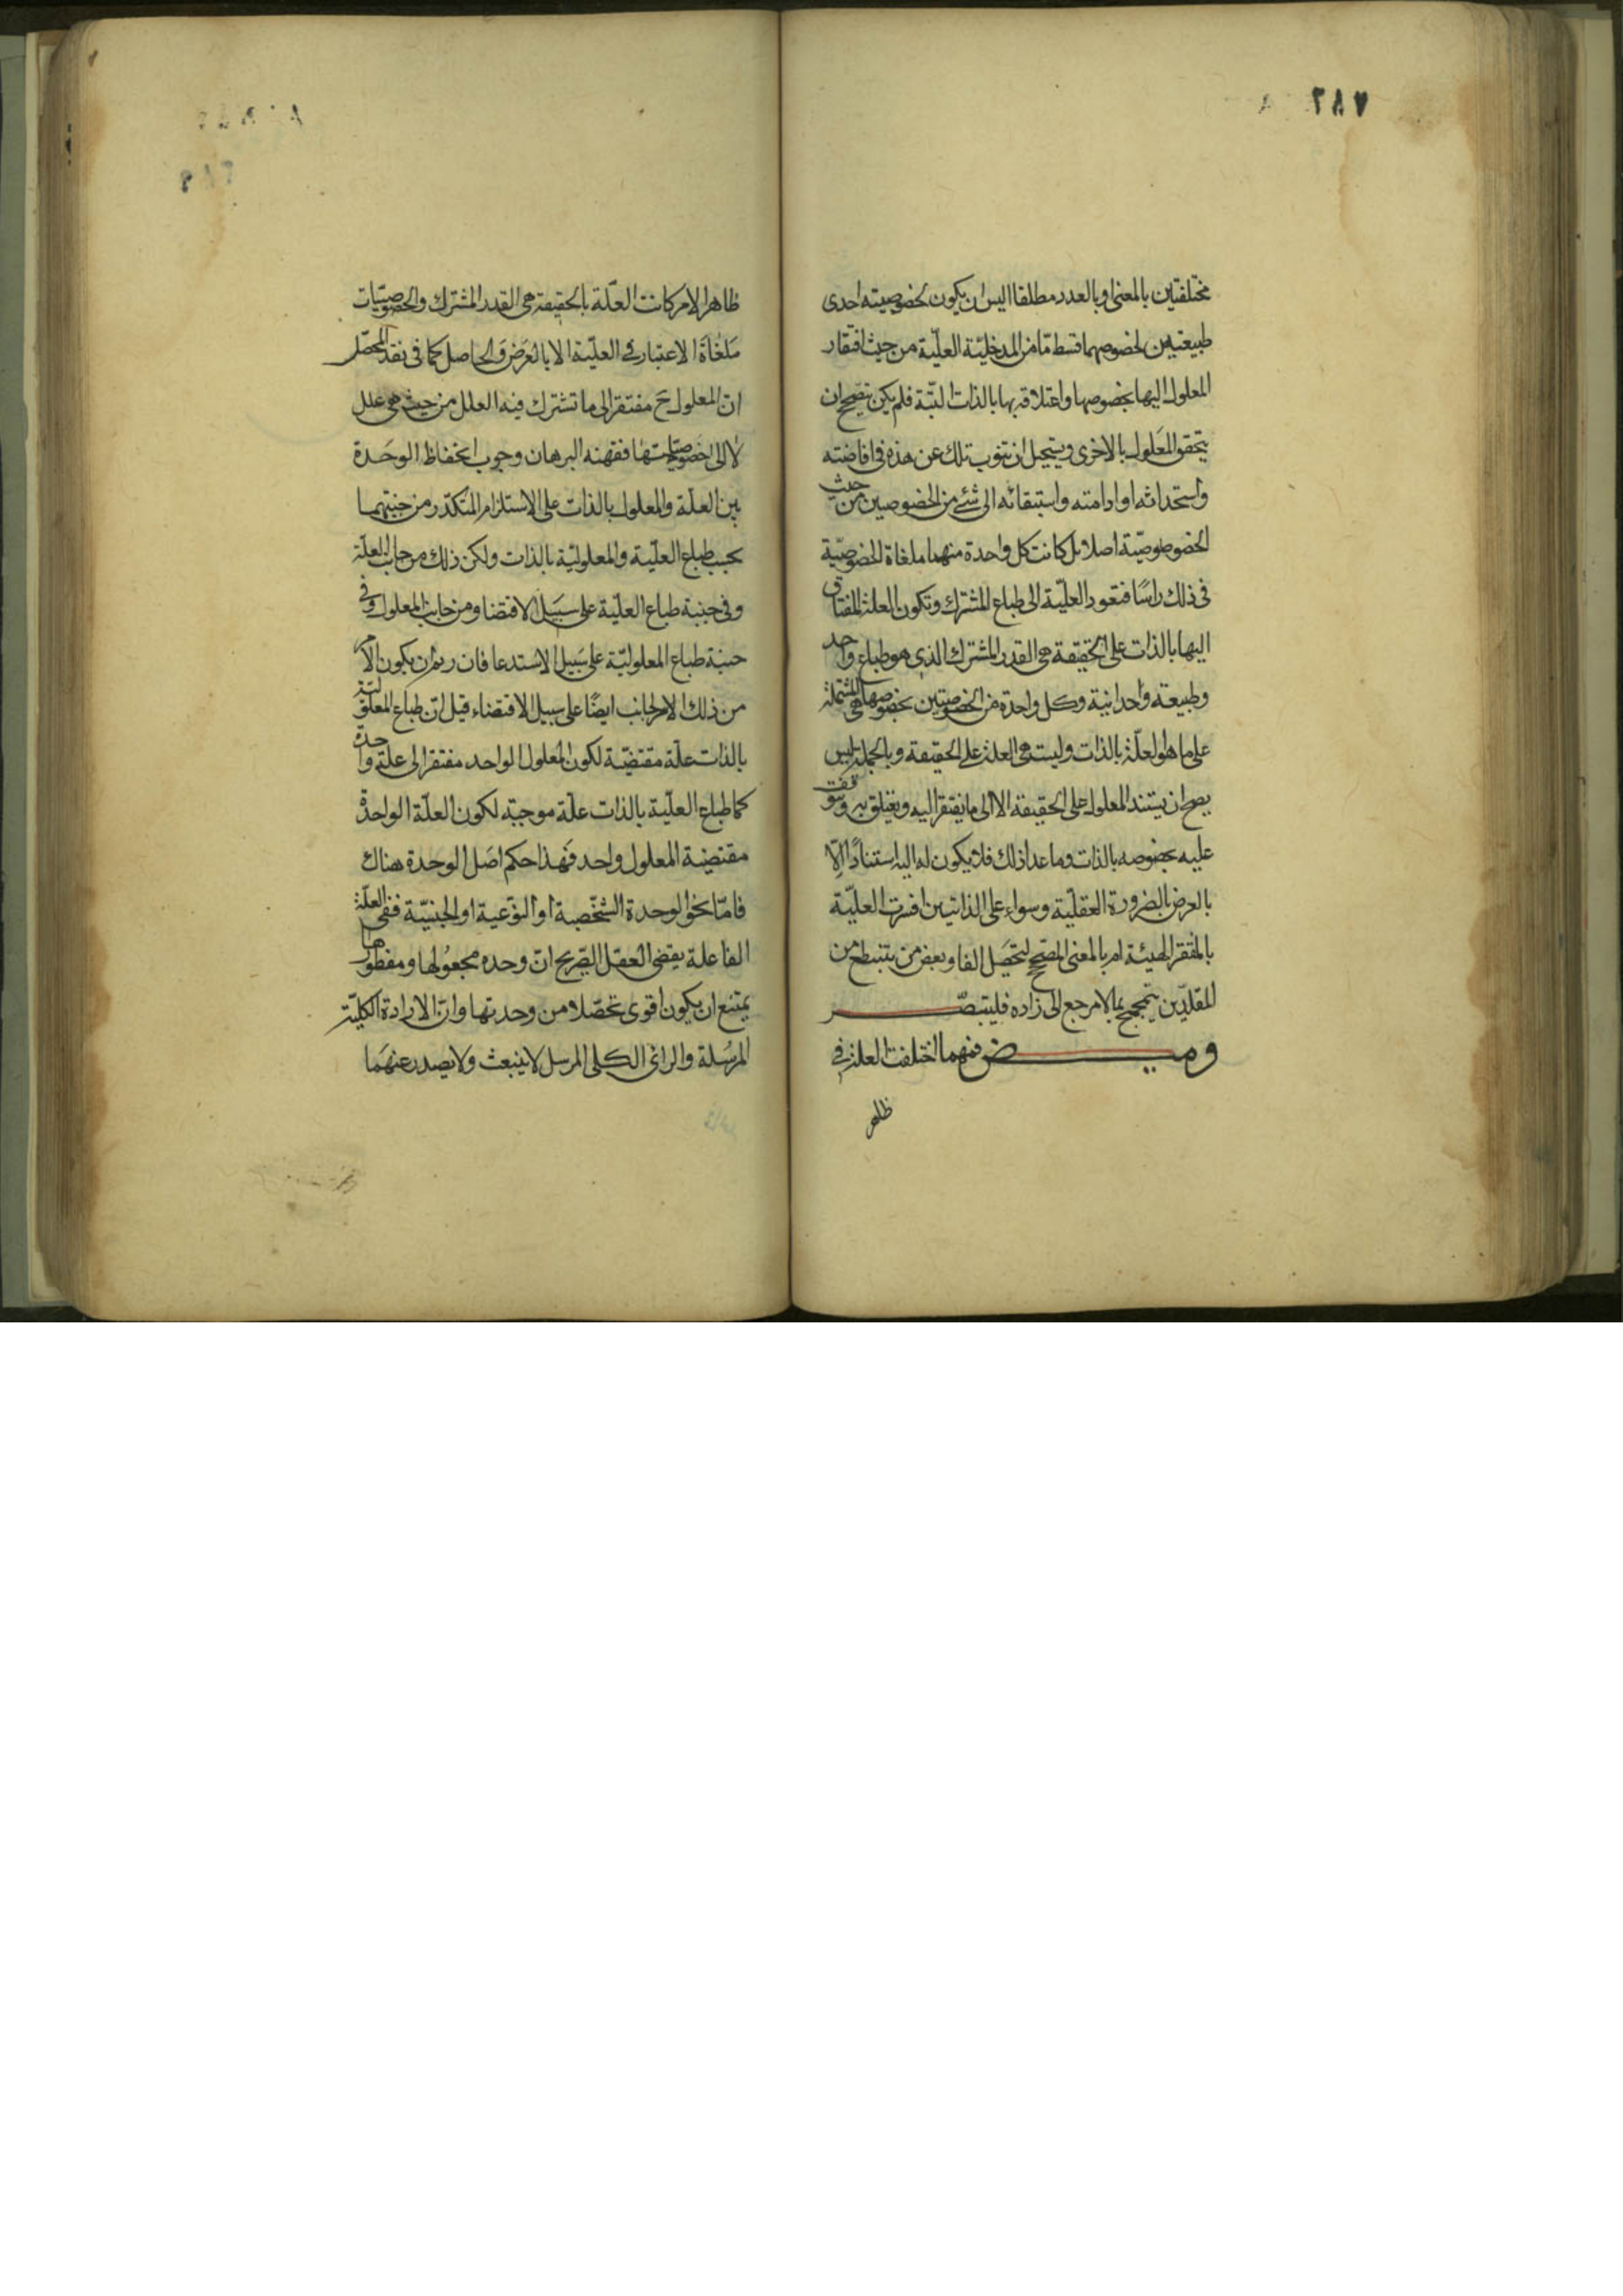 مختلفتين بالمعنى وبالعدد مطلقا اليس ان يكون لخصوصيته احدى
طبيعتين لخصوصهما قسط ما من المدخلية العلّية من حيث افتقار
المعلول اليها بخصوصها واعتلاقه بها بالذات البتّة فلم يكن يصحّ ان
يتحقق المعلول بالاخرى ويستحيل ان تنوب تلك عن هذه في افاضته
واستحداثه او ادامته واستبقائه الى شئ من الخصوصين من حيث
الخصوصيّة اصلا بل كانت كل واحدة منهما ملغاة الخصوصيّة
في ذلك راسًا فتعود العليّة الى طباع المشترك وتكون العلة المفتاق
اليها بالذات على الحقيقة هى القدر المشترك الذى هو طباع واحد
وطبيعة واحدانية وكل واحدة من الخصوصيتين بخصوصها هى المشتملة
على ما هو لعلّة بالذات وليست هى العلة على الحقيقة وبالجملة ليس
يصح ان يستند المعلول على الحقيقة الا الى ما يفتقر اليه ويتعلق به ويتوقف
عليه بخصوصه بالذات وما عدا ذلك فلا يكون له اليه استنادًا الّا
بالعرض بالضرورة العقليّة وسواء على الذاتيتين افسرت العليّة
بالمفتقر اليه ام بالمعنى المصحح لتحصل الفا وبعض من يتنطع من
المقلدّين يتمجمج بما لا مرجع الى زاده فليتبصّر
وميض فمهما اختلفت العلة في
ظاهر
ظاهر الامر كانت العلّة بالحقيقة هى القدر المشترك والخصوصيّات
ملغاة الاعتبار في العليّة الا بالعرض والحاصل كما في نقد المحصّل
انّ المعلول ح مفتقر الى ما تشترك فيه العلل من حيث هى علل
لا الى خصوصياتها فقهنه البرهان وجوب انحفاظ الوحدة
بين العلّة والمعلول بالذات على الاستلزام المتكرّر من جنبتيهما
بحسب طباع العليّة والمعلوليّة بالذات ولكن ذلك من جانب العلّة
وفى جنبة طباع العليّة على سبيل الاقتضا ومن جانب المعلول وفى
جنبة طباع المعلوليّة على سبيل الاستدعا فان ريم ان يكون الامر
من ذلك الجانب ايضًا على سبيل الاقتضاء قيل انّ طباع المعلوليّة
بالذات علّة مقتضيّة لكون المعلول الواحد مفتقرا الى علّة واحدة
كما طباع العليّة بالذات علّة موجبّة لكون العلّة الواحدة
مقتضيّة المعلول واحد فهذا حكم اصل الوحدة هناك
فامّا نحو الوحدة الشخّصية او النوّعية او الجنسيّة ففى العلّة
الفاعلة يقضى العقل الصّريح انّ وحده مجعولها ومفطورها
يمتنع ان يكون اقوى تحصّلا من وحدتها وانّ الارادة الكليّة
المرسلة والراى الكلى المرسل لا ينبعث ولا يصدر عنهما